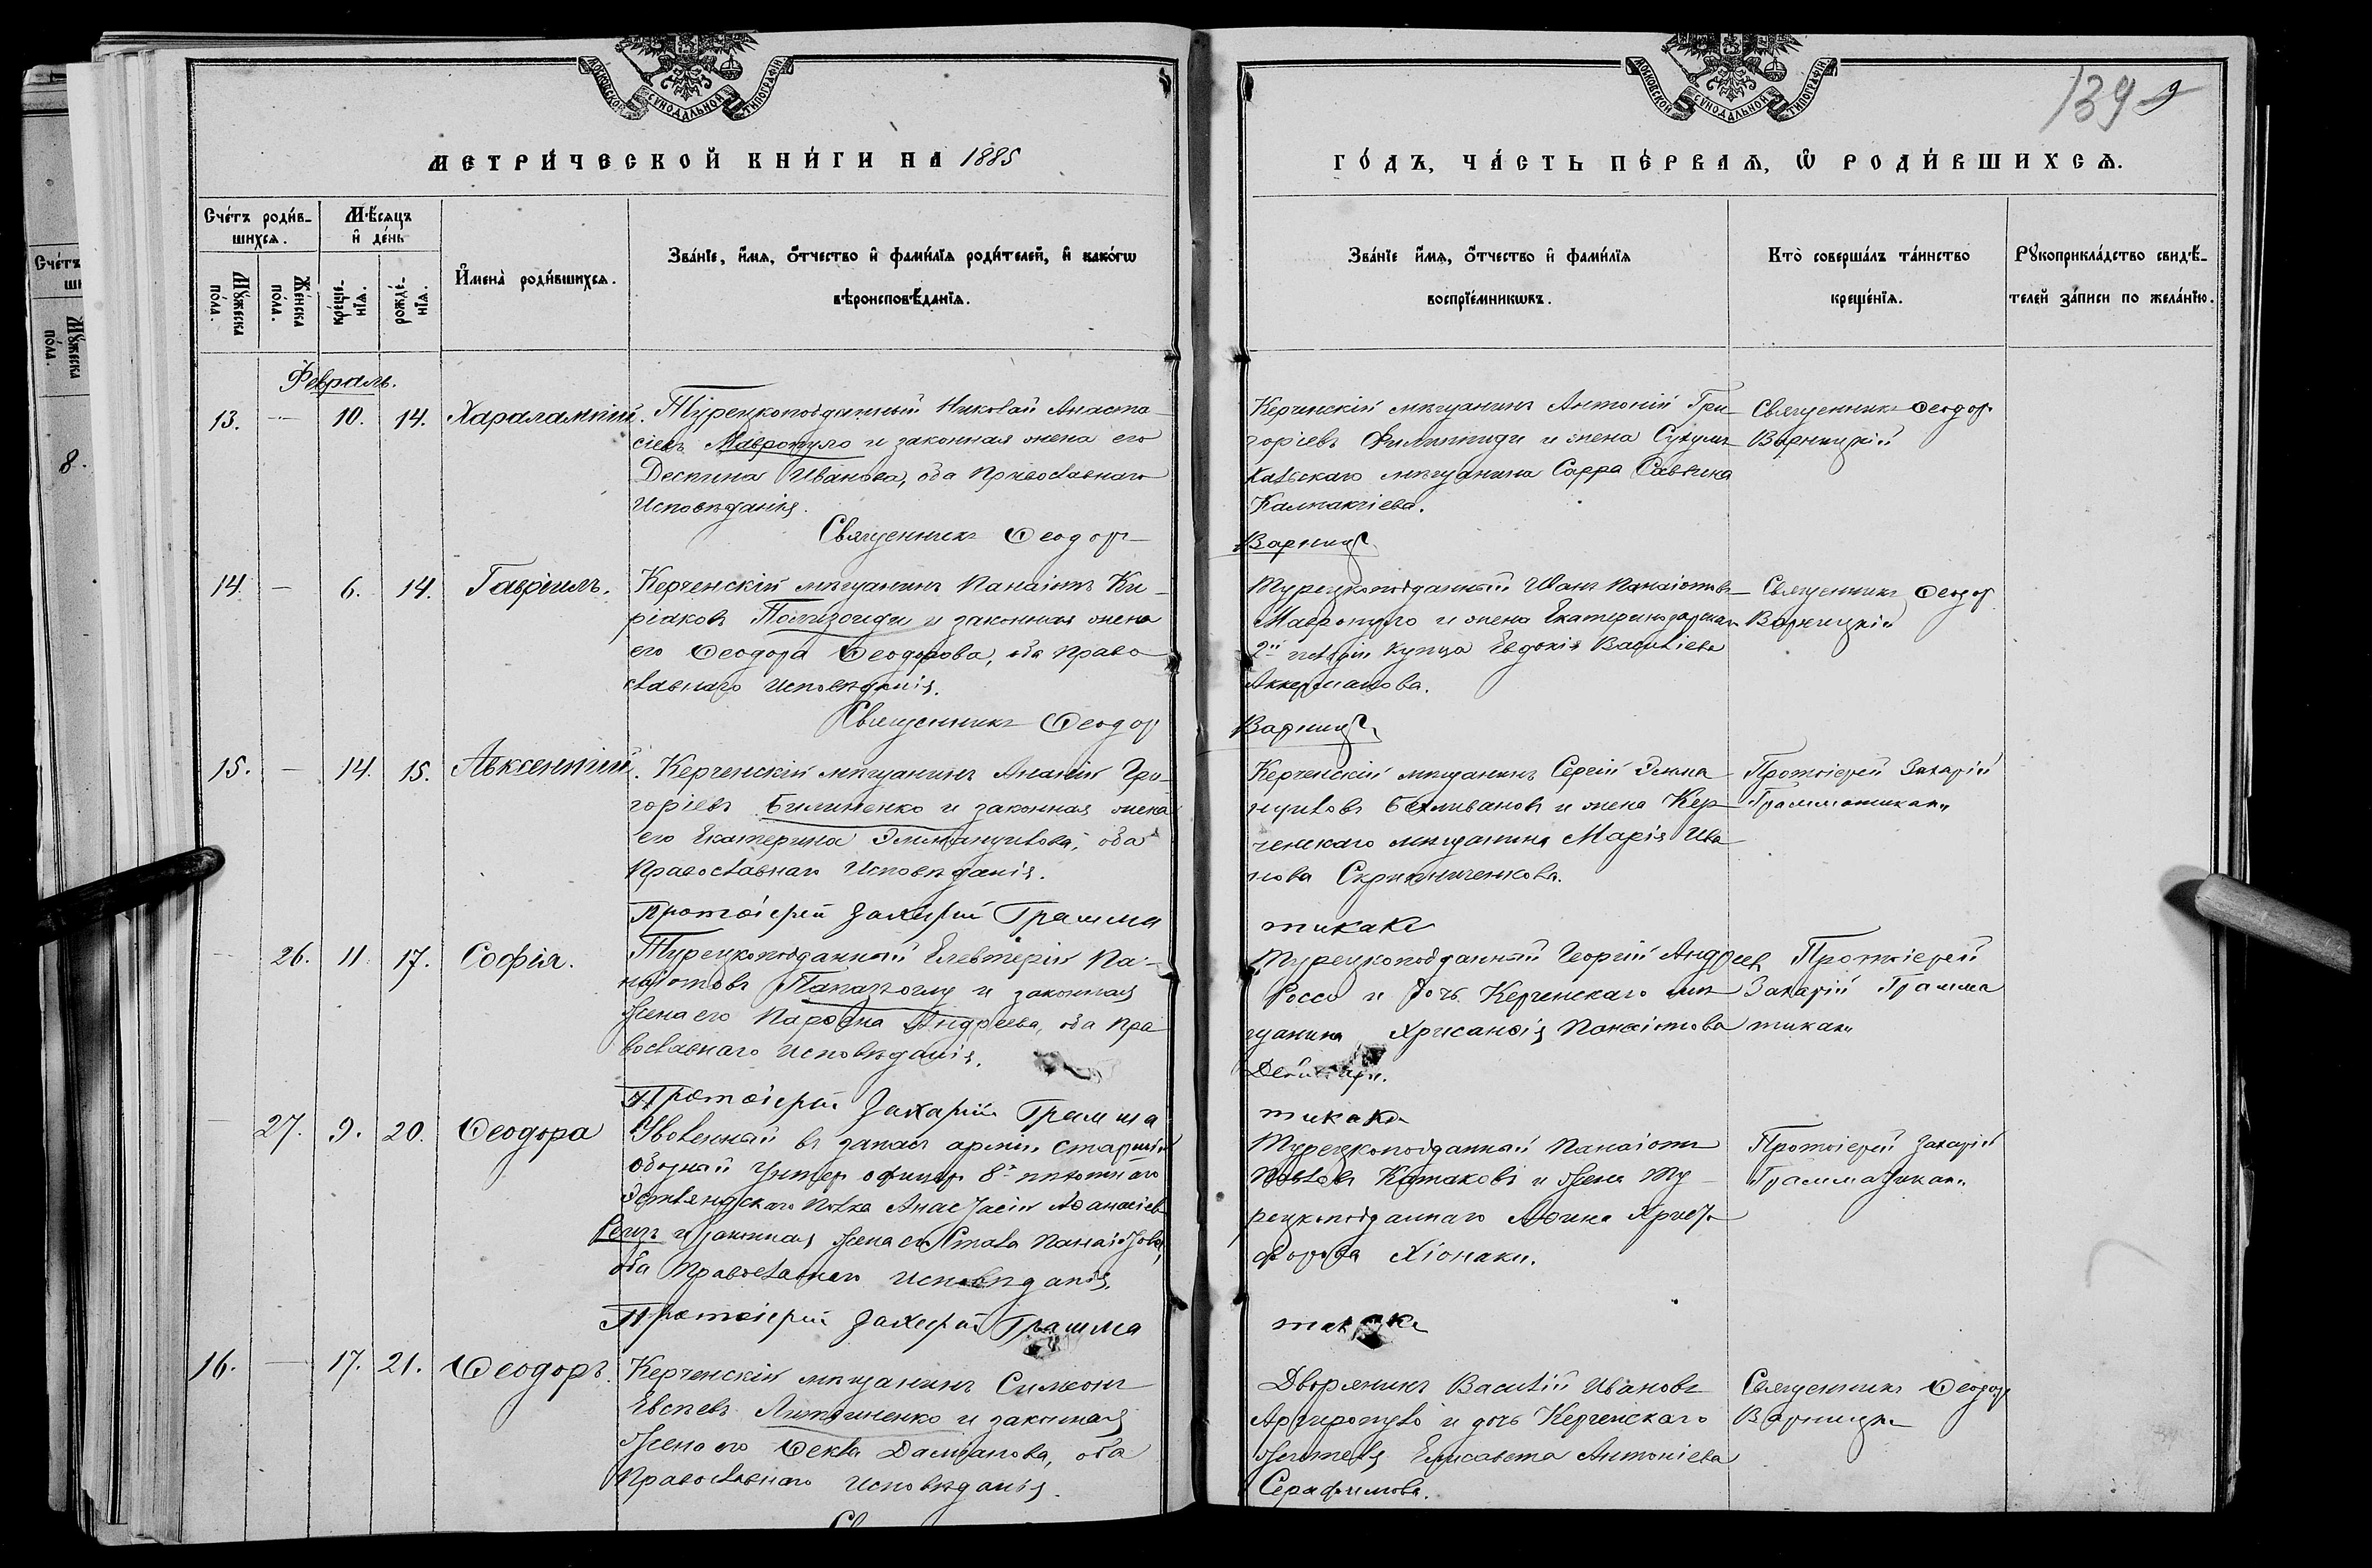 МОСКОВСКОЙ СУНОДАЛЬНОЙ ТИПОГРАФІИ
МОСКОВСКОЙ СУНОДАЛЬНОЙ ТИПОГРАФІИ
139
МЕТРИ́ЧЕСКОЙ КНИ́ГИ НА 1885
ГО́ДЪ, ЧА́СТЬ ПЕ́РВАѦ, Ѿ РОДИ́ВШИХСѦ.
Сче́тъ роди́в-
шихсѧ.
Мѣ́сѧцъ
и҆ де́нь
Мꙋ́жеска
по́ла.
Же́нска
по́ла.
креще́-
нїѧ.
рожде́-
нїѧ.
И҆мена̀ роди́вшихсѧ.
Зва́нїе, и҆́мѧ, ѻ҆́тчество и҆ фами́лїѧ роди́телей, и҆ како́гѡ
вѣроисповѣ́данїѧ.
Зва́нїе и҆́мѧ, ѻ҆́тчество и҆ фами́лїѧ
воспрїе́мникѡвъ.
Кто̀ соверша́лъ та́инство
креще́нїѧ.
Рꙋкоприкла́дство свидѣ́-
телей за́писи по жела́нїю.
Февраль.
13. — 10. 14. Харалампій.
Турецкоподданный Николай Анаста-
сіевъ Мавропуло и законная жена его
Деспина Иванова, оба Православнаго
Исповѣданія.
Священникъ Ѳеодоръ
Керченскій мѣщанинъ Антоній Гри-
горіевъ Филиппиди и жена Сухумъ
Кальскаго мѣщанина Сарра Саввина
Калпакчіева.
Варниц
Священникъ Ѳеодоръ
Варницкій
14. — 6. 14. Гавріилъ.
Керченскій мѣщанинъ Панаіотъ Ки-
ріаковъ Помазоиди и законная жена
его Ѳеодора Ѳеодорова, оба Право
славнаго Исповѣданія.
Священникъ Ѳеодор
Турецкоподданный Иванъ Панаіотовъ
Мавропуло и жена Екатеринодарскаго
2й гильдіи Купца Евдокія Васильева
Аккерманова.
Варниц
Священникъ Ѳеодор
Варницкій
15. — 14. 15. Авксентій.
Керченскій мѣщанинъ Ананій Гри-
горіевъ Билиненко и законная жена
его Екатерина Эммануилова, оба
Православнаго Исповѣданія.
Протоіерей Захарій Грамма
Керченскій мѣщанинъ Сергій Эмма
нуиловъ и жена Кер-
ченскаго мѣщанина Марія Ива
нова
тикаки
Протоіерей Захарій
Грамматикаки
— 26. 11. 17. Софія.
Турецкоподданный Елевтерій Па-
наіотовъ Папазоглу и законная
жена его Андреева, оба Пра
вославнаго Исповѣданія.
Протоіерей Захарій Грамма
Турецкоподданный Георгій Андреев
Россо и дочь Керченскаго мѣ
щанина Хрисанѳія Панаіотова
тикаки
Протоіерей
Захарій Грамма
тикаки
— 27. 9. 20. Ѳеодора
Уволенный въ запасъ арміи старшій
обозный Унтер офицер 8го пѣхотнаго
Эстляндскаго Полка Анастасій Аѳанасіевъ
и законная жена его Панаіотова,
оба Православнаго Исповѣданія.
Протоіерей Захарій Грамма
Турецкоподданный Панаіотъ
Павловъ и жена Ту-
рецкоподданнаго Аѳина Христо
форова Хіонаки.
тикаки
Протоіерей Захарій
Грамматикаки
16. — 17. 21. Ѳеодоръ.
Керченскій мѣщанинъ Симеонъ
Евсѣевъ и законная
жена его Ѳекла Даміанова, оба
Православнаго Исповѣданія.
Дворянинъ Василій Ивановъ
Аргиропуло и дочь Керченскаго
жителя Елисавета Антоніева
Серафимова.
Священникъ Ѳеодоръ
Варницкій
Сче́тъ
Мꙋ́жеска
по́ла.
8.